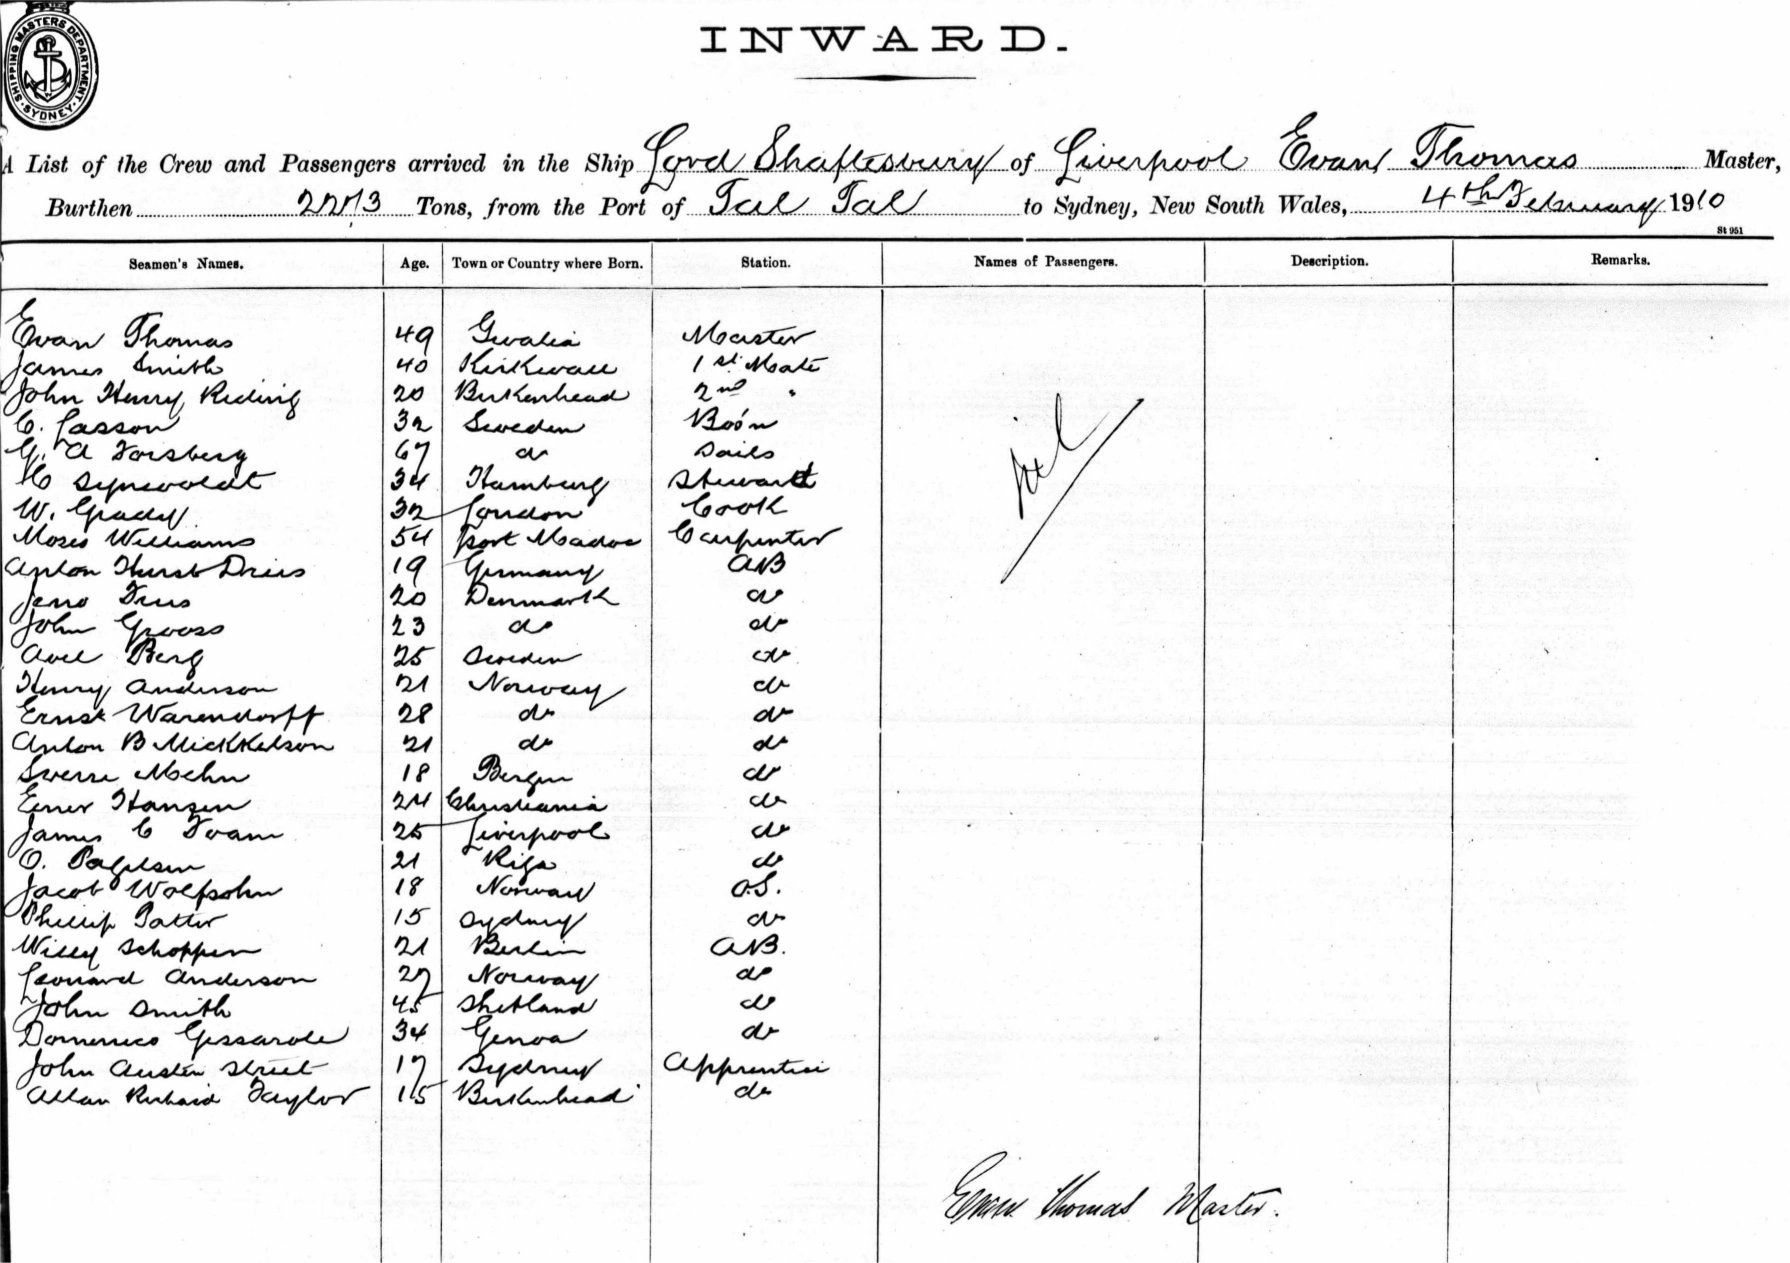 SHIPPING MASTERS DEPARTMENT. SYDNEY
INWARD.
A List of the Crew and Passengers arrived in the Ship Lord Shaftesbury of Liverpool Evan Thomas Master,
Burthen 2273 Tons, from the Port of Tal Tal to Sydney, New South Wales, 4th February 1910
St 951
Seamen's Names. Age. Town or Country where Born. Station. Names of Passengers. Description. Remarks.
Evan Thomas 49 Gwalia Master
James Smith 40 Kirkwall 1st Mate
John Henry Riding 20 Birkenhead 2nd "
C. Lasson 32 Sweden Bo'n
G. A Forsberg 67 do Sails
H 34 Hamburg Steward
W. Grady 32 London Cook
Moses Williams 54 Port Madoc Carpenter
Anton Dries 19 Germany AB
Jens Friis 20 Denmark do
John Grooss 23 do do
Axel Berg 25 Sweden do
Henry Anderson 21 Norway do
Ernst Warendorff 28 do do
Anton B Mickkelson 21 do do
Sverre Moehn 18 Bergen do
Einer Hansen 24 Christiania do
James C 25 Liverpool do
O. 21 Riga do
Jacob Wolfsohn 18 Norway O.S.
Phillip Patter 15 Sydney do
Willy Schoppen 21 Berlin AB.
Leonard Anderson 27 Norway do
John Smith 45 Shetland do
Domenico 34 Genoa do
John Austen Street 17 Sydney Apprentice
Allan Richard Taylor 15 Birkenhead do
nil
Evan Thomas Master.